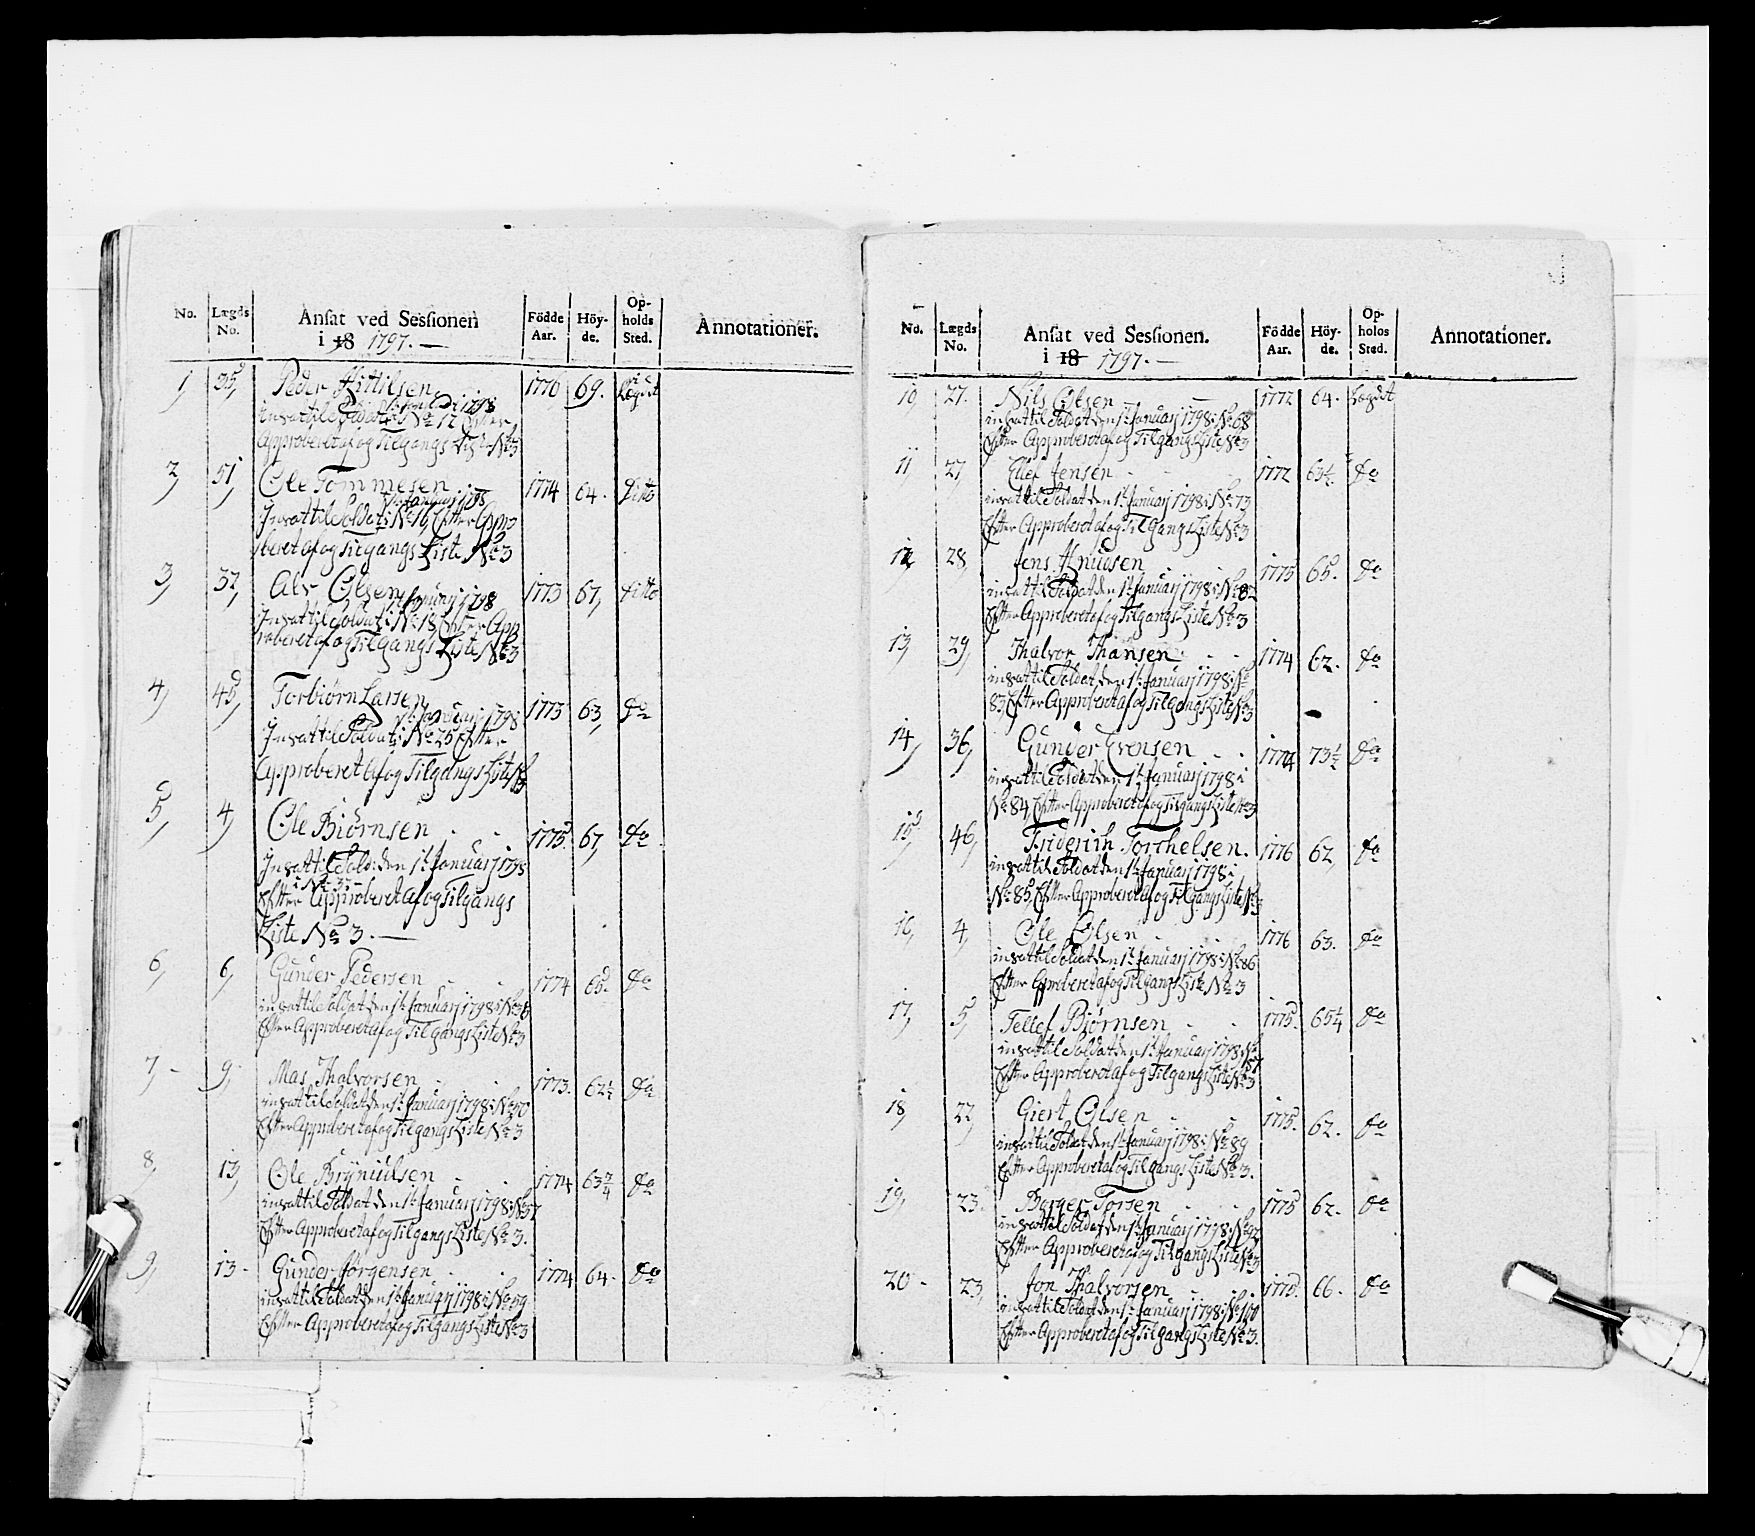 No. Lægds No. Ansat ved Sessionen i 18 1797. — Födde Aar. Höy-de. Op-holds Sted. Annotationer.
1, 35, Peder Kittilsen 1770 69. i Lægdet
insat til Soldat i No 17 Efter
Approberet af og Tilgangs Liste No 3
2, 51, Ole Tommesen 1774 64. ditto
1t Januarj 1798
Insat til Soldat i No 16 Efter Appro
beret af og Tilgangs Liste No 3
3, 37, Alv Olsen 1773 67, ditto
1t Januarj 1798
Insat til Soldat i No 18 Efter App
roberet af og Tilgangs Liste No 3
4, 45, Torbiørn Larsen 1773 63, do
1t Januarj 1798
Insat til Soldat i No 25 Efter
Approberet af og Tilgangs Liste No 3
5, 4, Ole Biørnsen 1775 67, do
Insat til Sold: den 1t Januarj 1798
Efter Approberet af og Tilgangs
Liste No 3. —
6, 6, Gunder Pedersen 1774 65. do
insat til Soldat den 1t Januarj 1798 i No 38
Efter Approberet af og Tilgangs Liste No 3
7, 9, Mas Thalvorsen 1773. 62½ do
insat til Soldat den 1t Januarj 1798 i No 90
Efter Approberet af og Tilgangs Liste No 3
8, 13, Ole Bryniulsen 1774 63¾ do
insat til Soldat den 1t Januarj 1798 i No 57
Efter Approberet af og Tilgangs Liste No 3.
9, 13. Gunder Jørgensen 1774 64. do
insat til Soldat den 1t Januarj 1798 i No 59
Efter Approberet af og Tilgangs Liste No 3
No. Lægds No. Ansat ved Sessionen. i 18 1797. — Födde Aar. Höy-de. Op-holos Sted. Annotationer.
10, 27. Nils Olsen 1772 64. Lægdet
insat til Soldat den 1t Januarj 1798 i No 68
Efter Approberet af og Tilgangs Liste No 3
11 27 Ellef Jensen 1772 63½ do
insat til Soldat den 1t Januarj 1798 i No 73
Efter Approberet af og Tilgangs Liste No 3
12 28, Jens Knudsen 1775 65. do
insat til Soldat den 1t Januarj 1798 i No 82
Efter Approberet af og Tilgangs Liste No 3
13, 29, Thalvor Thansen 1774 62. do
insat til Soldat den 1t Januarj 1798 i No
83, Efter Approberet af og Tilgangs Liste No 3
14, 36, Gunder Evensen 1774 73½ do
insat til Soldat den 1t Januarj 1798 i
No 84, Efter Approberet af og Tilgangs Liste No 3
15, 46, Friderich Torchelsen. 1776 62, do
insat til Soldat den 1t Januarj 1798 i
No 85, Efter Approberet af og Tilgangs Liste No 3
16, 4, Ole Olsen 1776 63. do
insat til Soldat den 1t Januarj 1798 i No 86
Efter Approberet af og Tilgangs Liste No 3
17, 5, Tellef Biørnsen 1775. 65¼ do
insat til Soldat den 1t Januarj 1798 i No 87
Efter Approberet af og Tilgangs Liste No 3
18, 22, Giert Olsen 1775. 62. do
insat til Soldat den 1t Januarj 1798 i No 89
Efter Approberet af og Tilgangs Liste No 3.
19, 23. Borger Torsen 1775 62. do
insat til Soldat den 1t Januarj 1798 i No 92
Efter Approberet af og Tilgangs Liste No 3
20. 23, Jon Thalvorsen 1775. 66. do
insat til Soldat den 1t Januarj 1798 i No 100
Efter Approberet af og Tilgangs Liste No 3.